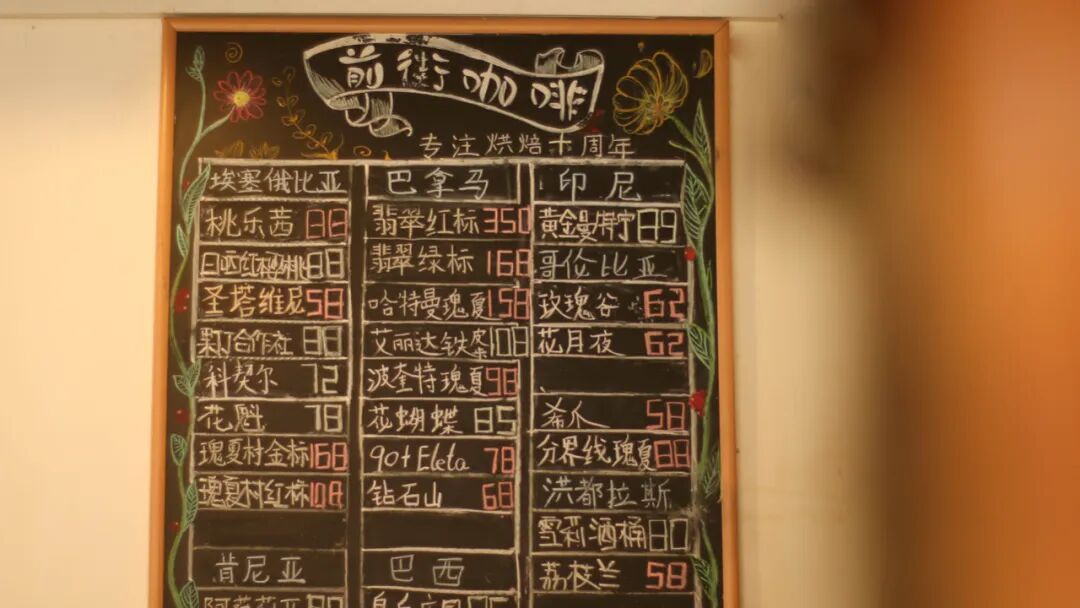 前街咖啡
专注烘焙十周年
埃塞俄比亚
桃乐茜 88
日晒红樱桃 88
圣塔维尼 58
果丁合作社 88
科契尔 72
花魁 78
瑰夏村金标 168
瑰夏村红标 108
肯尼亚
巴拿马
翡翠红标 350
翡翠绿标 168
哈特曼瑰夏 158
艾丽达铁皮 108
波奎特瑰夏 98
花蝴蝶 85
90+ Eleta 78
钻石山 68
巴西
印尼
黄金曼特宁 89
哥伦比亚
玫瑰谷 62
花月夜 62
希爪 58
分界线瑰夏 88
洪都拉斯
雪莉酒桶 80
荔枝兰 58